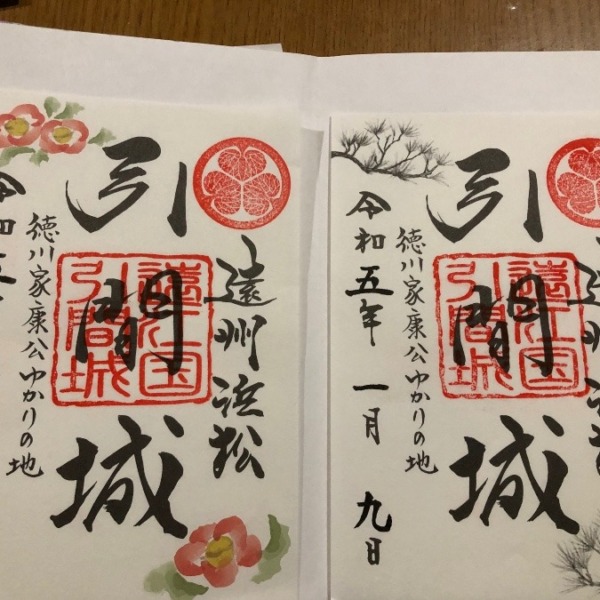 遠州浜松
引間城
遠江国
引間城
徳川家康公ゆかりの地
令和五
遠州浜松
引間城
遠江国
引間城
徳川家康公ゆかりの地
令和五年 一月 九日